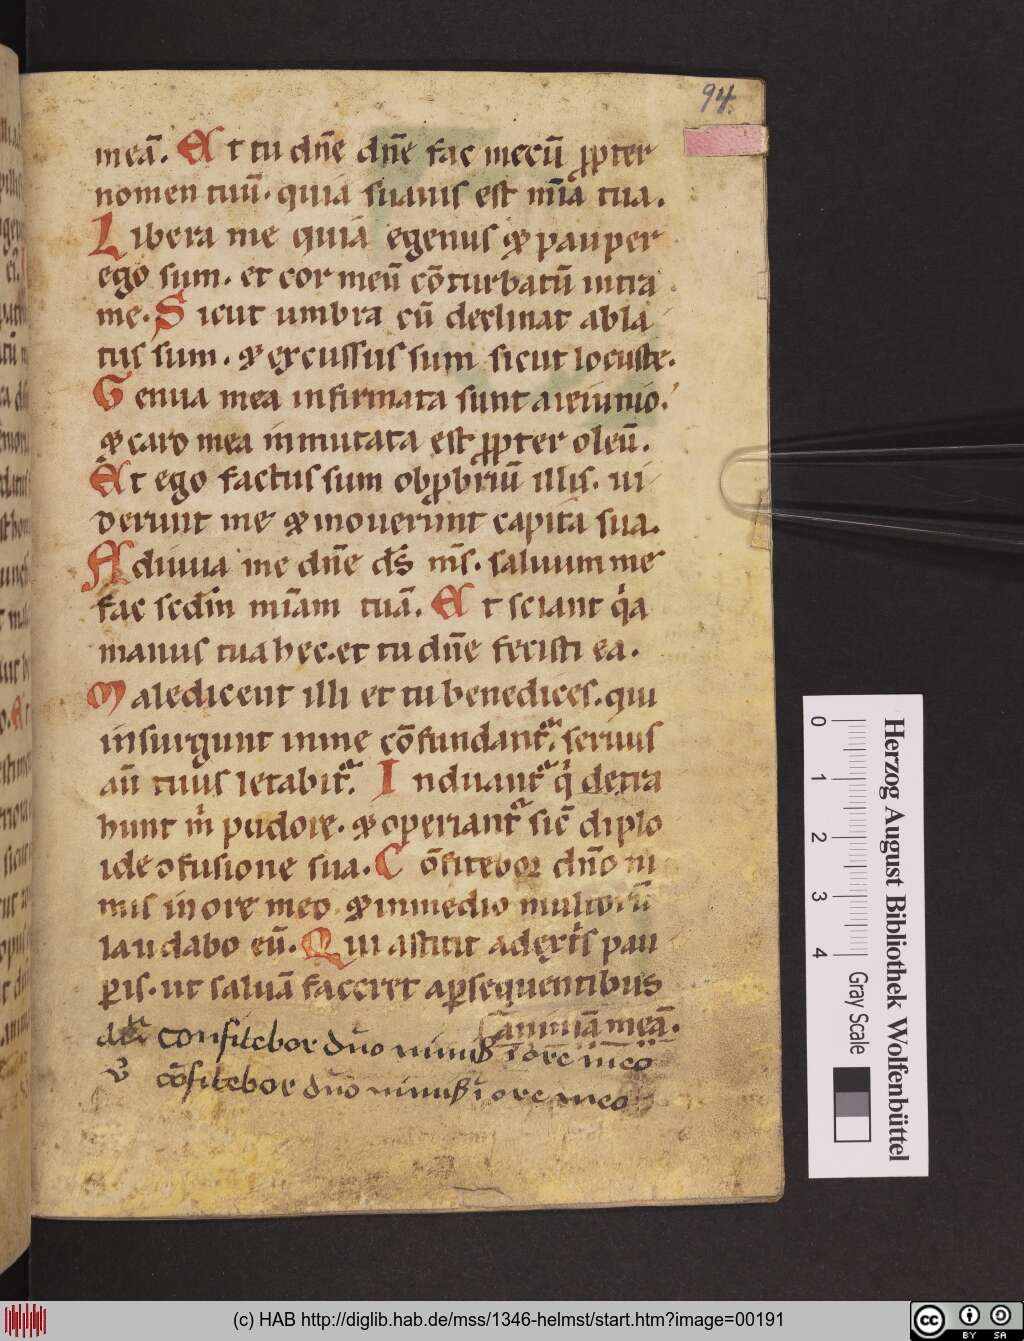 94.
meā. Et tu dn̄e dn̄e fac mecū ꝓpter
nomen tuū. quia suauis est mīa tua.
Libera me quia egenus ⁊ pauper
ego sum. et cor meū cōturbatū intra
me. Sicut umbra cū declinat abla
tus sum. ⁊ excussus sum sicut locuste.
Genua mea infirmata sunt a ieiunio.
⁊ caro mea inmutata est ꝓpter oleū.
Et ego factus sum obꝓbriū illis. ui
derunt me ⁊ mouerunt capita sua.
Adiuua me dn̄e ds̄ ms̄. saluum me
fac scdm̄ mīam tuā. Et sciant qͥa
manus tua hec. et tu dn̄e fecisti ea.
Maledicent illi et tu benedices. qui
insurgunt in me cōfundantᷣ. seruus
aū tuus letabitᷣ. Induantᷣ qͥ detra
hunt mͥ pudore. ⁊ operiantᷣ sic̄ diplo
ide ɔfusione sua. Cōfitebor dn̄o ni
mis in ore meo ⁊ in medio multorū
laudabo eū. Qui astitit a dextͥs pau
ꝑis. ut saluā faceret a ꝑsequentibus
aniniā meā.
Confitebor dn̄o nimis ī ore meo
v̄ cōfitebor dn̄o nimis ī ore meo
0 1 2 3 4
Gray Scale
Herzog August Bibliothek Wolfenbüttel
(c) HAB http://diglib.hab.de/mss/1346-helmst/start.htm?image=00191
cc BY SA